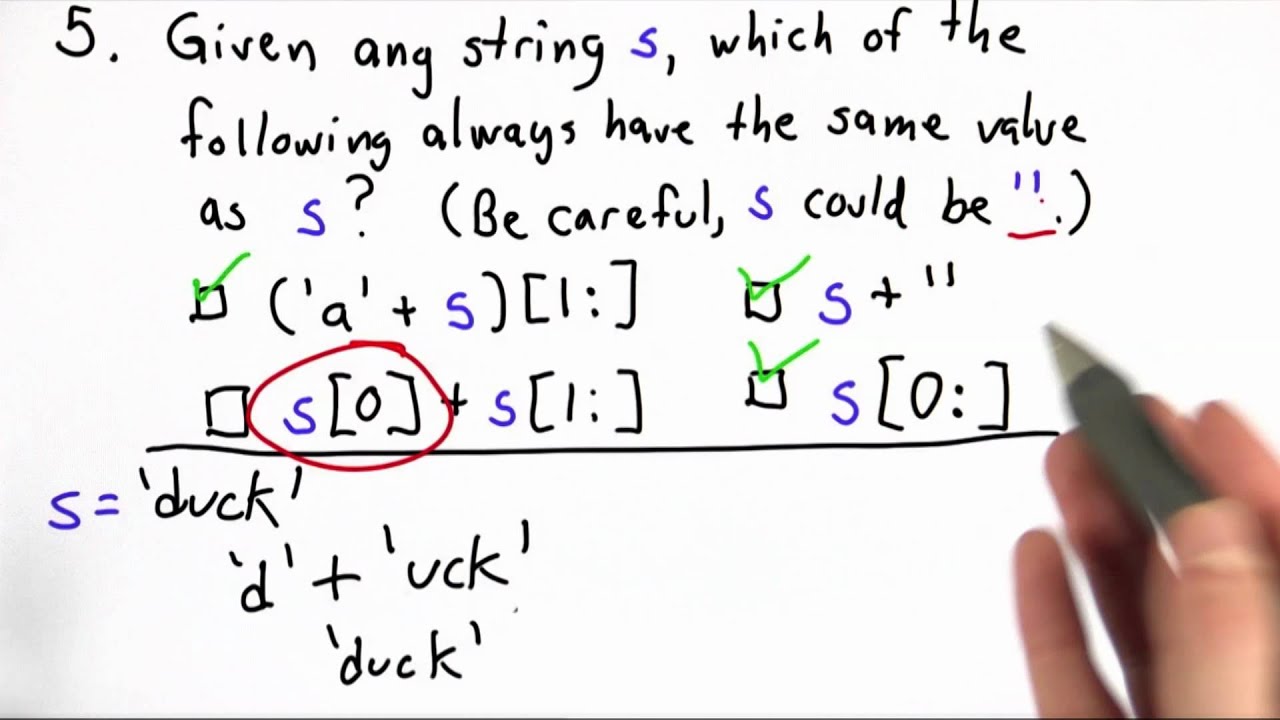 5. Given any string s, which of the
following always have the same value
as s? (Be careful, s could be ''.)
('a' + s)[1:]
s + ''
s[0] + s[1:]
s[0:]
s = 'duck'
'd' + 'uck'
'duck'